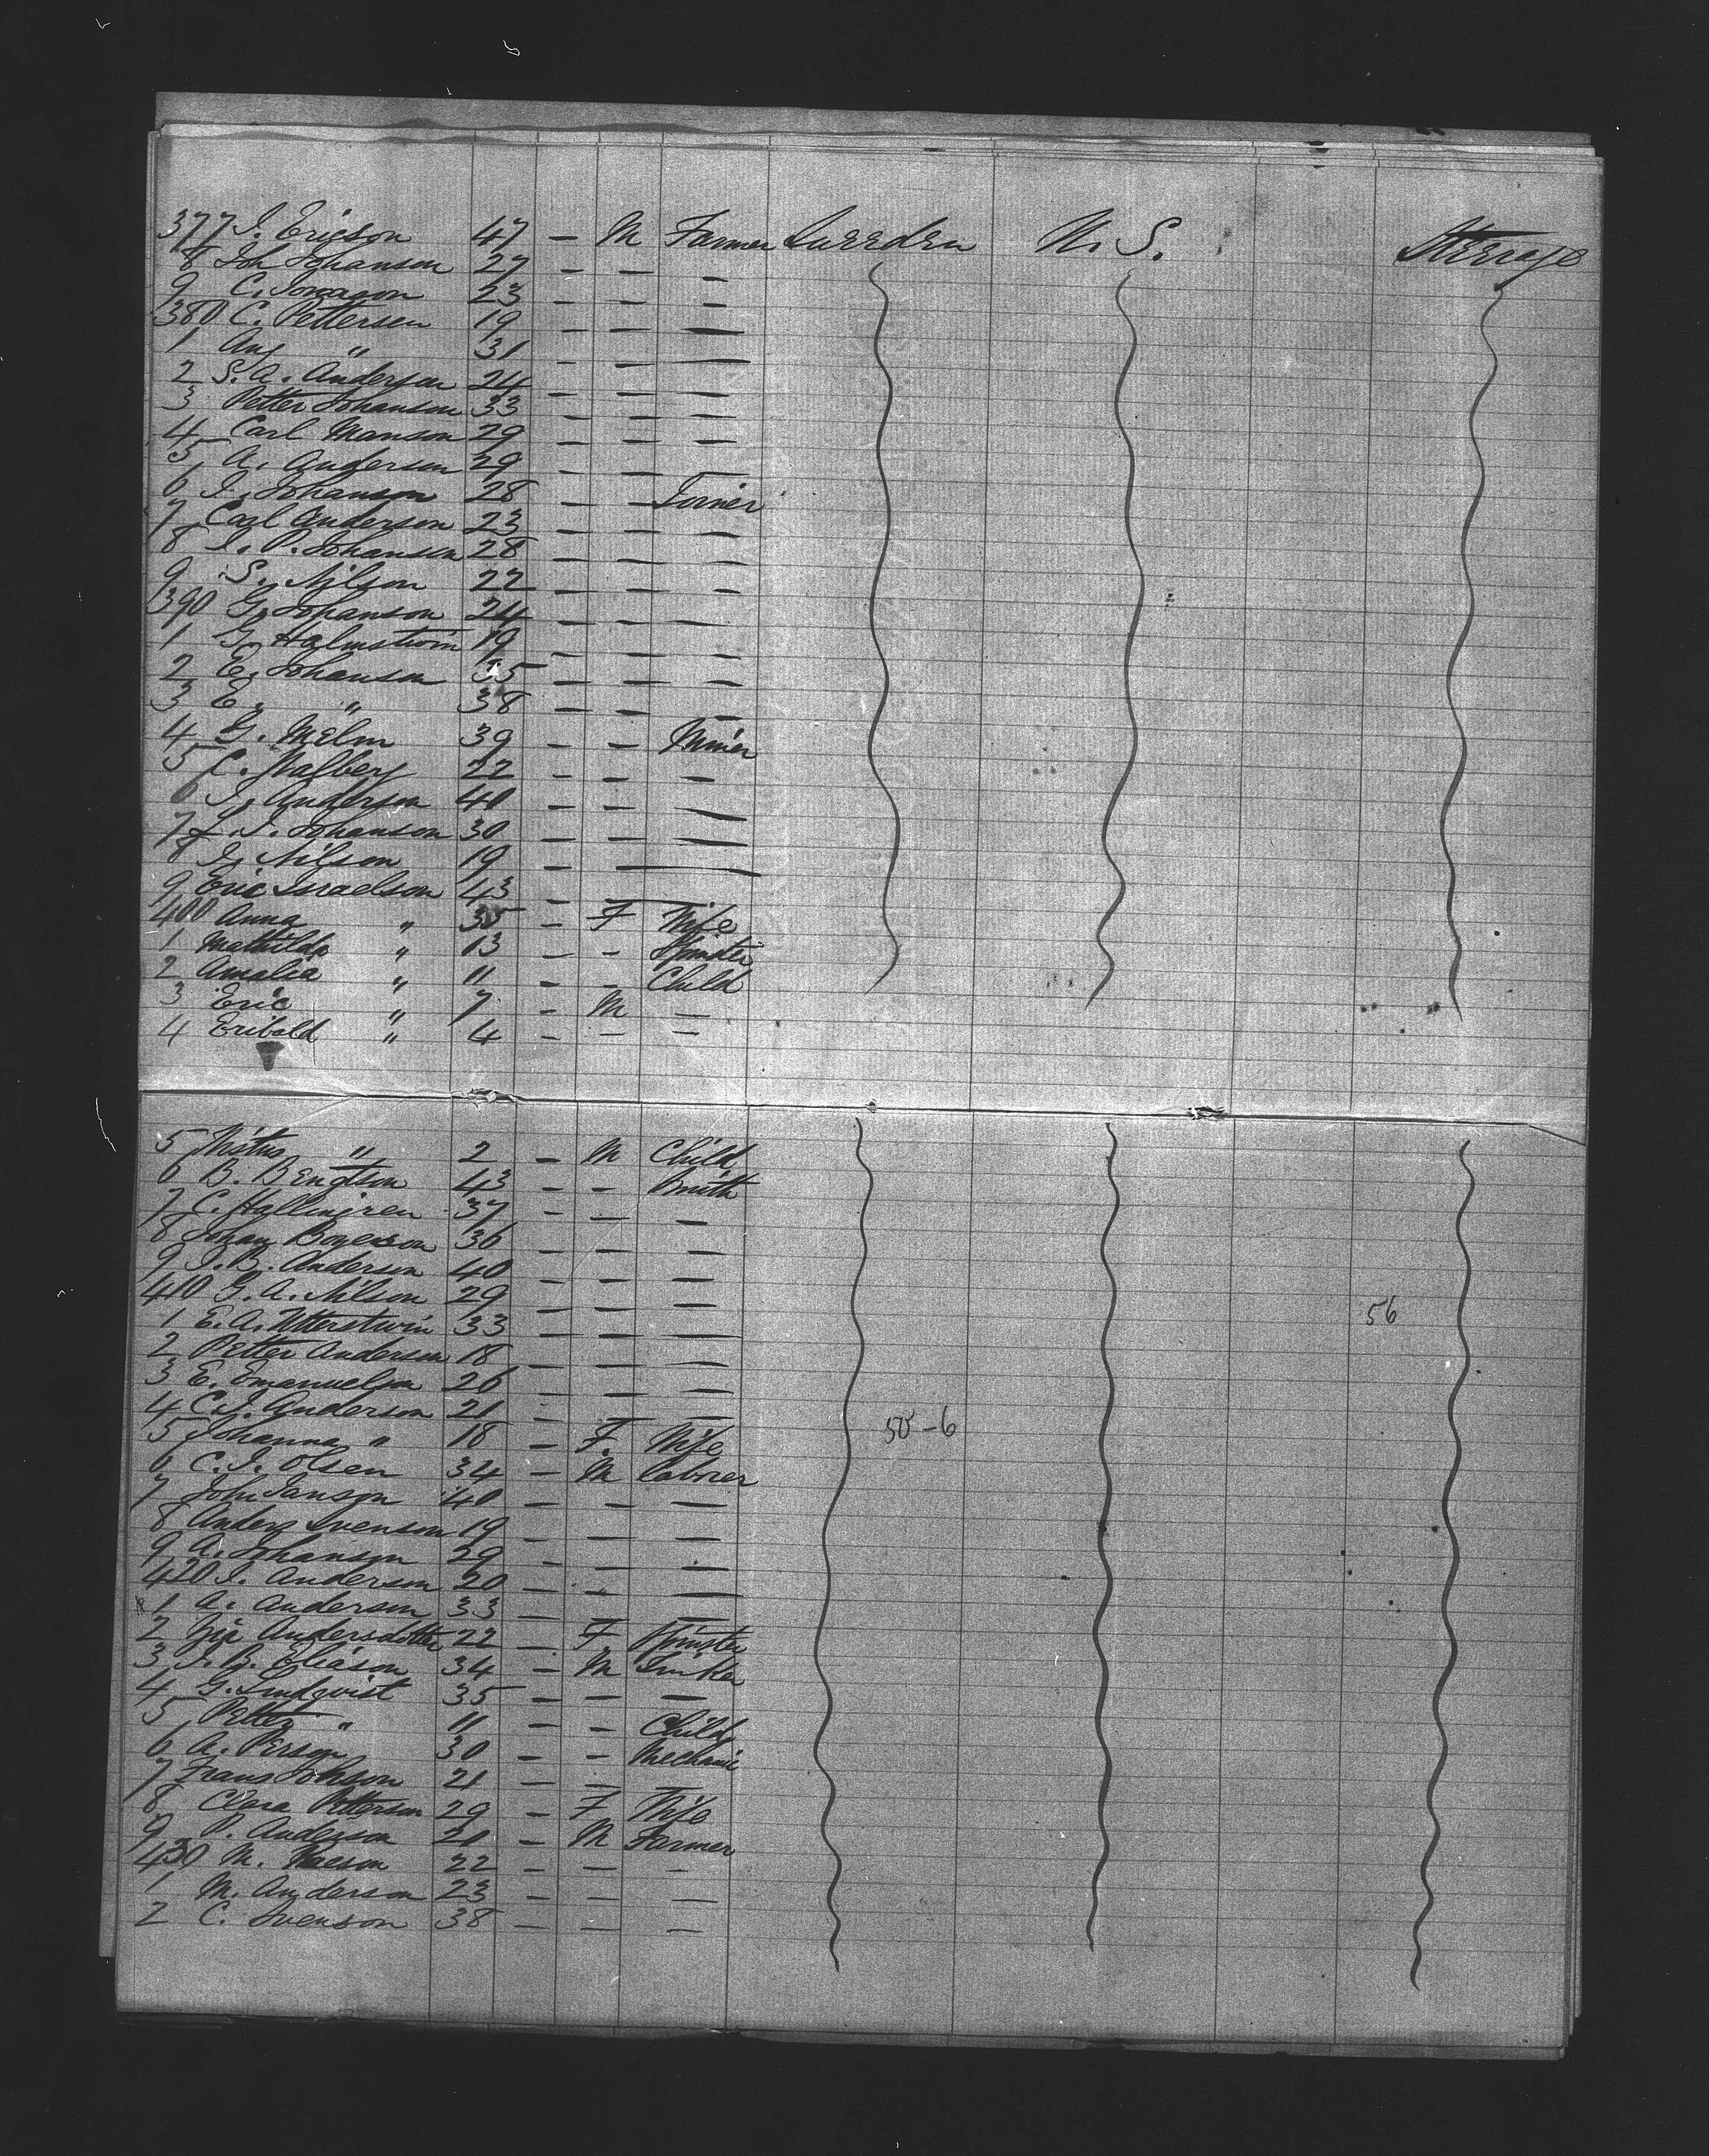 377 J. Ericson 47 — M Farmer Sweeden U. S. Sterage
8 Joh Johanson 27 — — —
9 C. 23 — — —
380 C. Pettersen 19 — — —
1 Aug " 31 — — —
2 S. A. Anderson 24 — — —
3 Petter Johanson 33 — — —
4 Carl Manson 29 — — —
5 A. Anderson 29 — — —
6 J. Johanson 28 — — Joiner
7 Carl Anderson 23 — — —
8 J. P. Johanson 28 — — —
9 S. Nilson 22 — — —
390 G. Johanson 24 — — —
1 G. Holmstrom 19 — — —
2 E. Johanson 35 — — —
3 E. " 38 — — —
4 G. Melm 39 — — Miner
5 C. 22 — — —
6 J. Anderson 40 — — —
7 L. J. Johanson 30 — — —
8 J. Nilson 19 — — —
9 Eric Israelson 43 — — —
400 Anna " 35 — F Wife
1 Mathilda " 13 — — Spinster
2 Amalia " 11 — — Child
3 Eric " 7 — M —
4 Eribald " 4 — — —
5 " 2 — M Child
6 B. Bengtson 43 — — Smith
7 C. Hallingren 37 — — —
8 Johan 36 — — —
9 J. B. Anderson 40 — — —
410 G. A. Nilson 29 — — — 56
1 E. A. Utterstrom 33 — — —
2 Petter Anderson 18 — — —
3 E. Emanuelson 26 — — —
4 C. J. Anderson 21 — — — 50-6
5 Johanna " 18 — F Wife
6 C. J. Olsen 34 — M Laborer
7 John Janson 40 — — —
8 Anders Svenson 19 — — —
9 A. Johanson 29 — — —
420 J. Anderson 20 — — —
1 A. Anderson 33 — — —
2 Andersdotter 22 — F Spinster
3 J. B. Eliason 34 — M
4 G. Lindqvist 35 — — —
5 Petter " 11 — — Child
6 A. Person 30 — — Mechanic
7 Frans Johson 21 — — —
8 Clara Petterson 29 — F Wife
9 P. Anderson 21 — M Farmer
430 M. 22 — — —
1 M. Anderson 23 — — —
2 C. Svenson 38 — — —